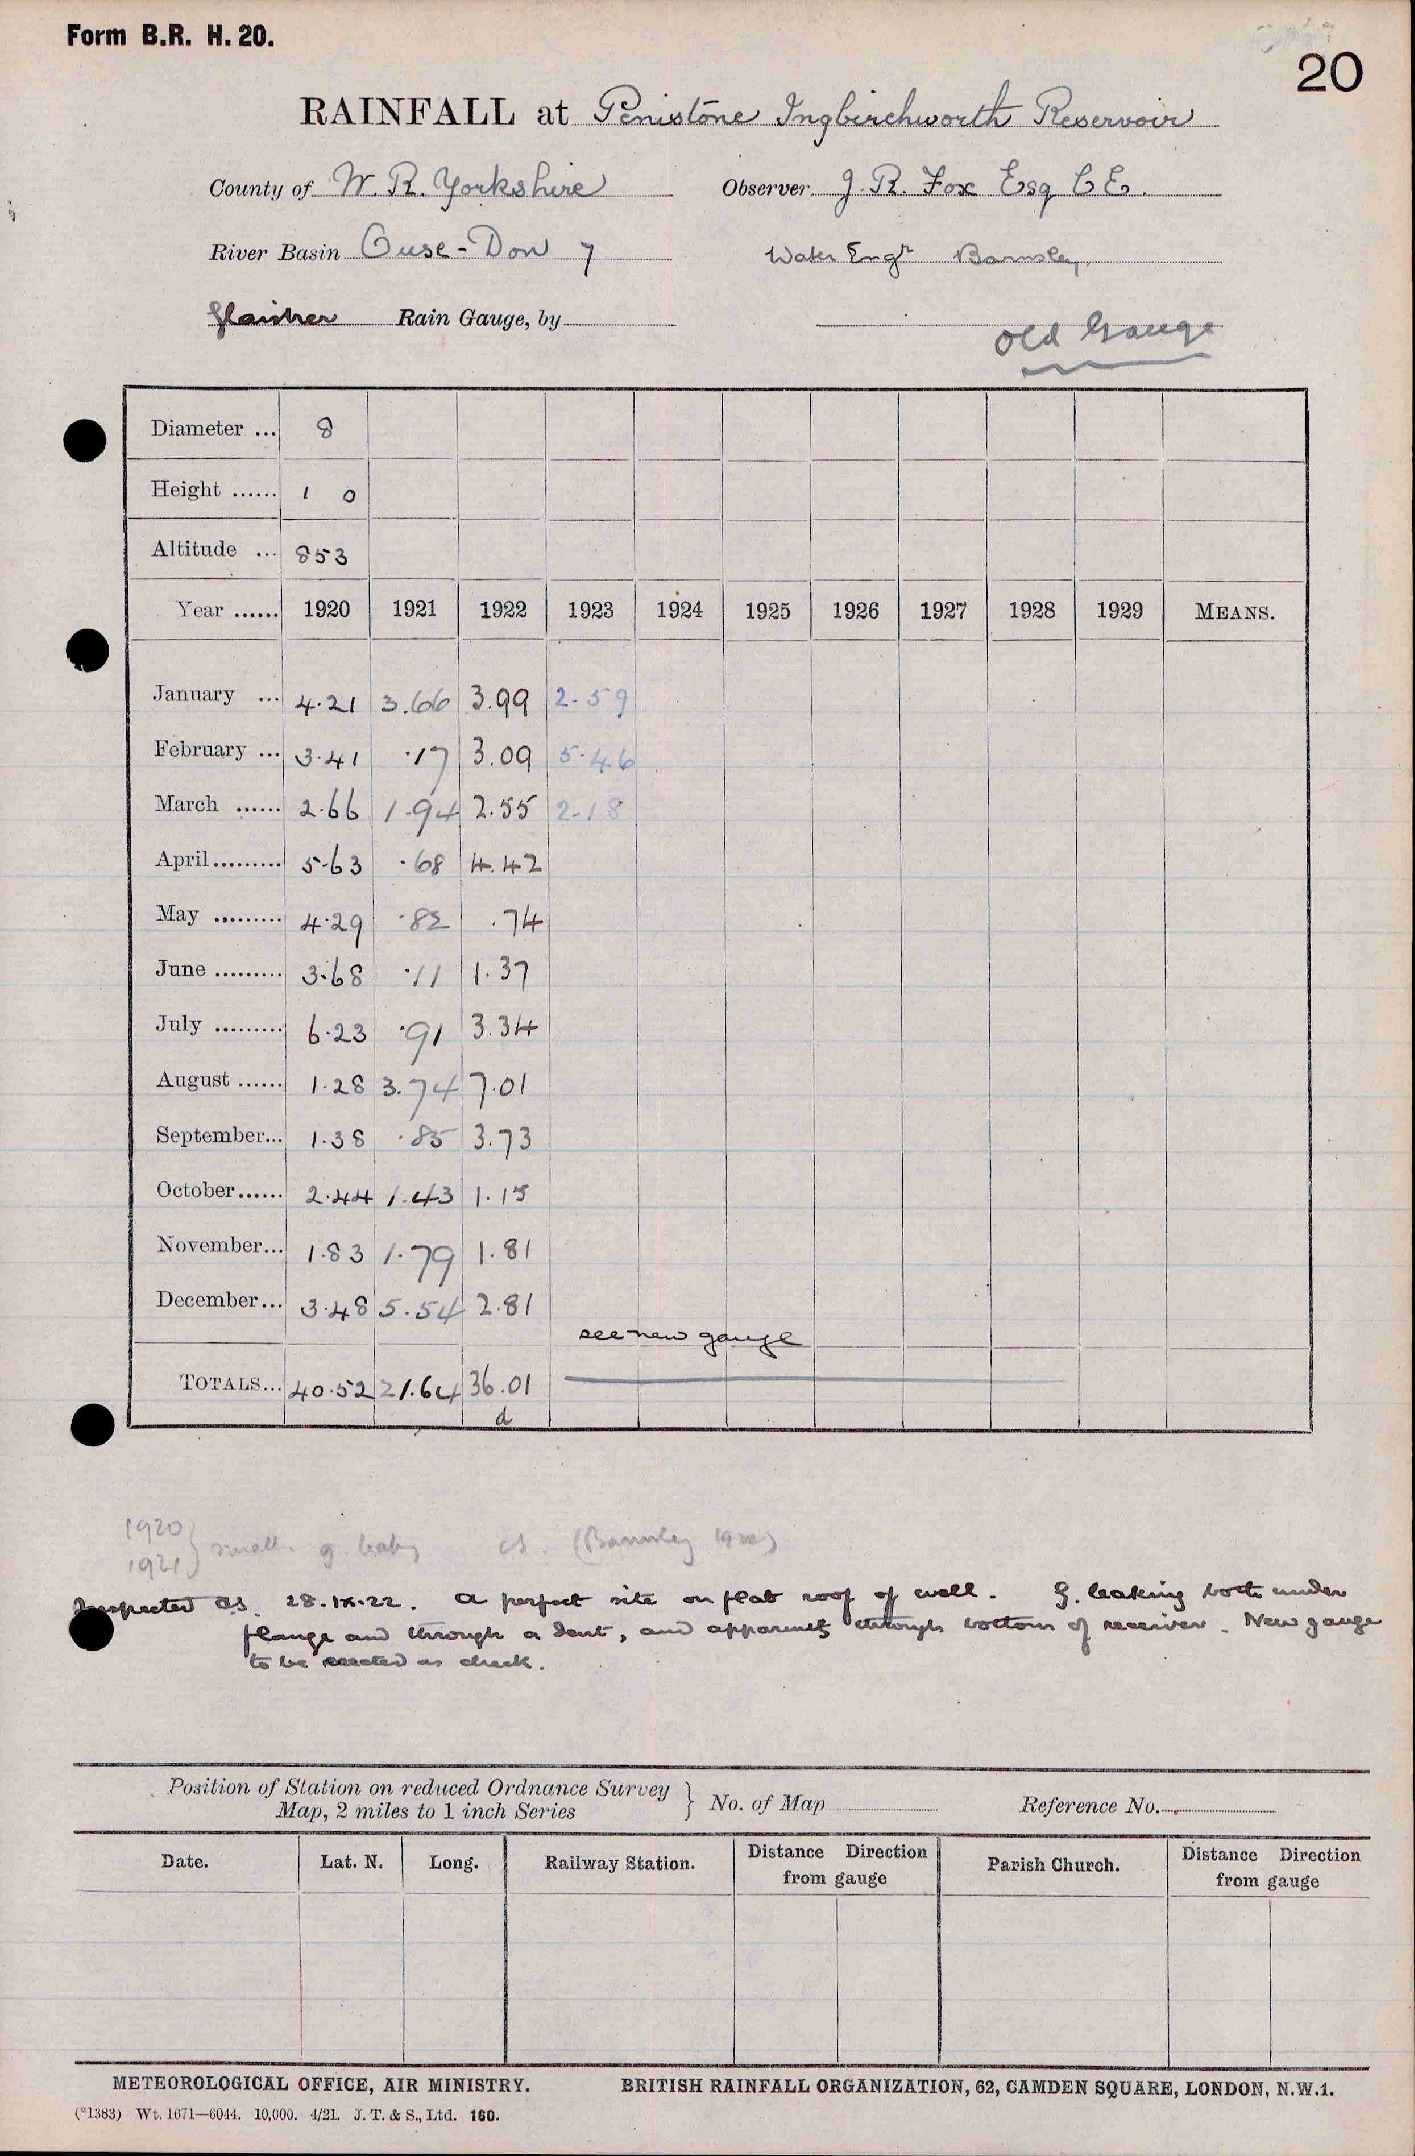 Form B.R. H. 20.
20
RAINFALL at Penistone Ingbirchworth Reservoir
County of W. R. Yorkshire Observer J. R. Fox Esq C.E.
River Basin Ouse - Don 7 Water Engr Barnsley.
Glaisher Rain Gauge, by
Old Gauge
Diameter ... 8
Height ...... 1 0
Altitude ... 853
Year ...... 1920 1921 1922 1923 1924 1925 1926 1927 1928 1929 MEANS.
January ... 4.21 3.66 3.99 2.59
February ... 3.41 .17 3.09 5.46
March ...... 2.66 1.94 2.55 2.18
April......... 5.63 .68 4.42
May ......... 4.29 .82 .74
June ......... 3.68 .11 1.37
July ......... 6.23 .91 3.34
August ...... 1.28 3.74 7.01
September... 1.38 .85 3.73
October...... 2.44 1.43 1.15
November... 1.83 1.79 1.81
December... 3.48 5.54 2.81
see new gauge
TOTALS... 40.52 21.64 36.01
d
1920
1921 } small. (Barnsley
Inspected 28.IX.22. A perfect site on flat roof of well. G. leaking both under
flange and through a dent, and apparently through bottom of receiver. New gauge
to be erected as check.
Position of Station on reduced Ordnance Survey
Map, 2 miles to 1 inch Series } No. of Map Reference No.
Date. Lat. N. Long. Railway Station. Distance Direction from gauge Parish Church. Distance Direction from gauge
METEOROLOGICAL OFFICE, AIR MINISTRY. BRITISH RAINFALL ORGANIZATION, 62, CAMDEN SQUARE, LONDON, N.W.1.
(*1383) Wt. 1671—6044. 10,000. 4/21. J. T. & S., Ltd. 160.